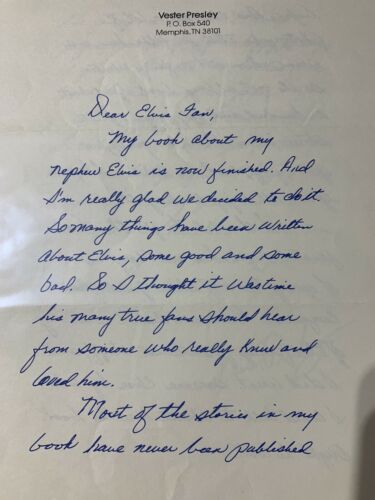 Vester Presley
P. O. Box 540
Memphis, TN 38101
Dear Elvis Fan,
My book about my
nephew Elvis is now finished. And
I'm really glad we decided to do it.
So many things have been written
about Elvis, some good and some
bad. So I thought it was time
his many true fans should hear
from someone who really knew and
loved him.
Most of the stories in my
book have never been published